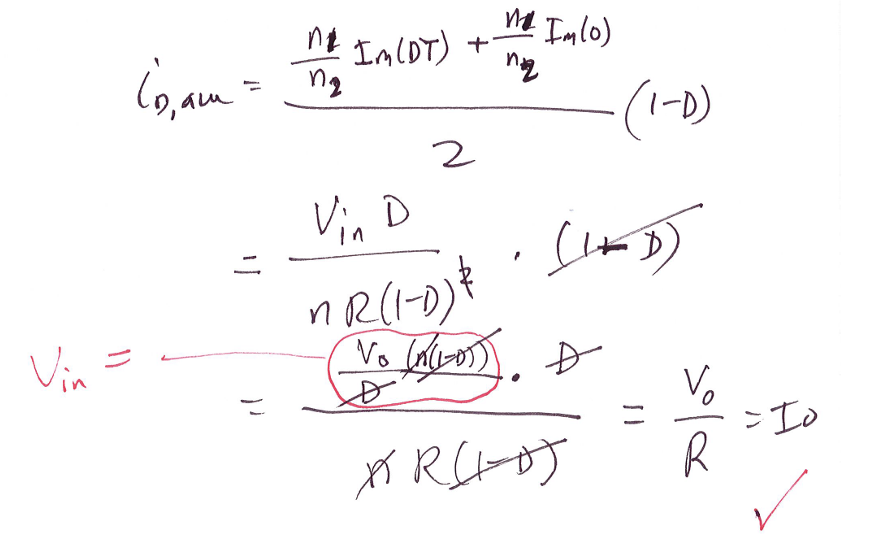 i_D,ave = (n1/n2 Im(DT) + n1/n2 Im(0))/2 (1-D)
= Vin D / n R(1-D)^2 · (1-D)
Vin =
= (Vo (n(1-D))/D · D) / (n R(1-D)) = Vo/R = Io ✓